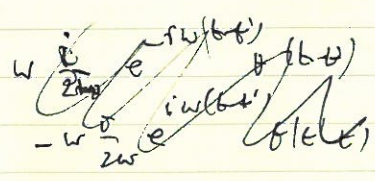 w i/2w e^{-iw(t-t')} θ(t-t')
-w i/2w e^{iw(t-t')} θ(t'-t)